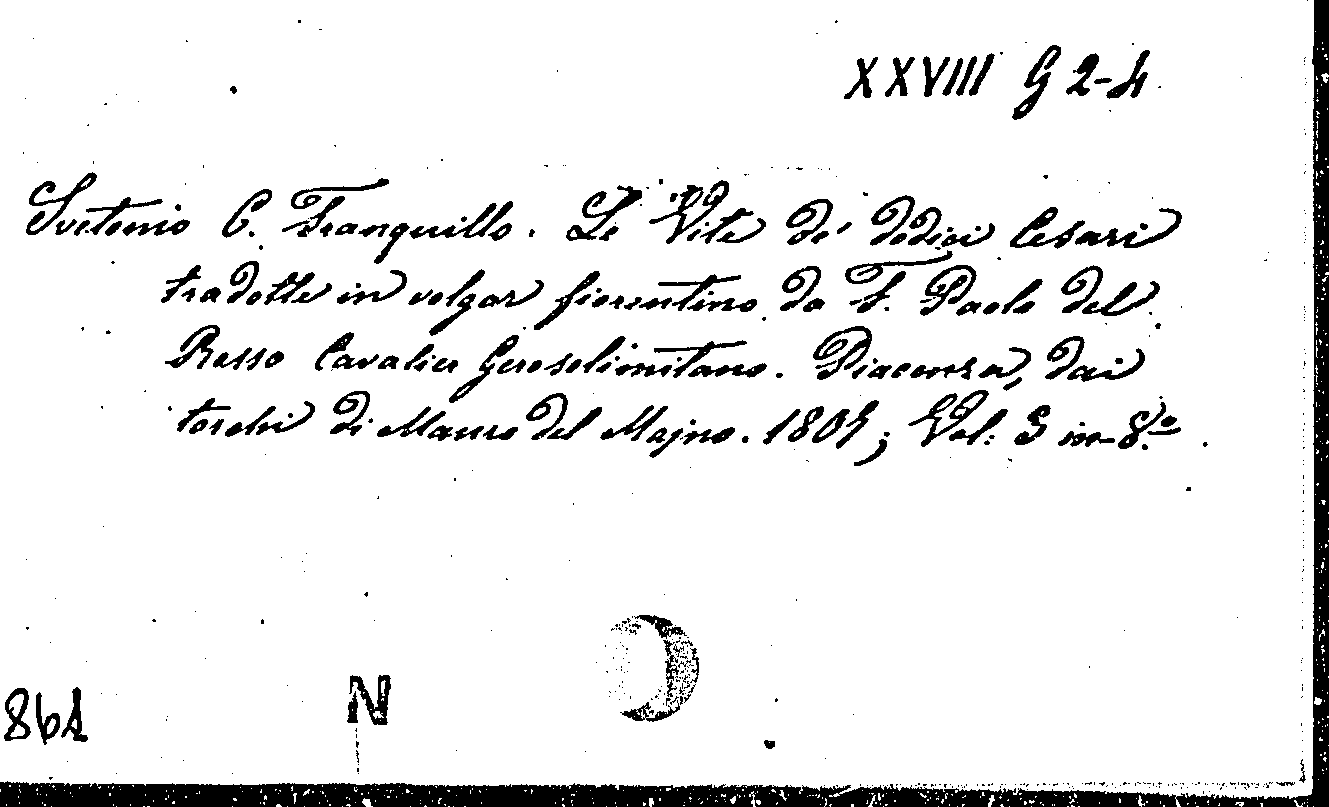 XXVIII G 2-4
Svetonio C. Tranquillo. Le Vite de' dodici Cesari
tradotte in volgar fiorentino da F. Paolo del
Rosso Cavalier Gerosolimitano. Piacenza, dai
torchi di Mauro del Majno. 1807; Vol: 3 in-8.º
N
861